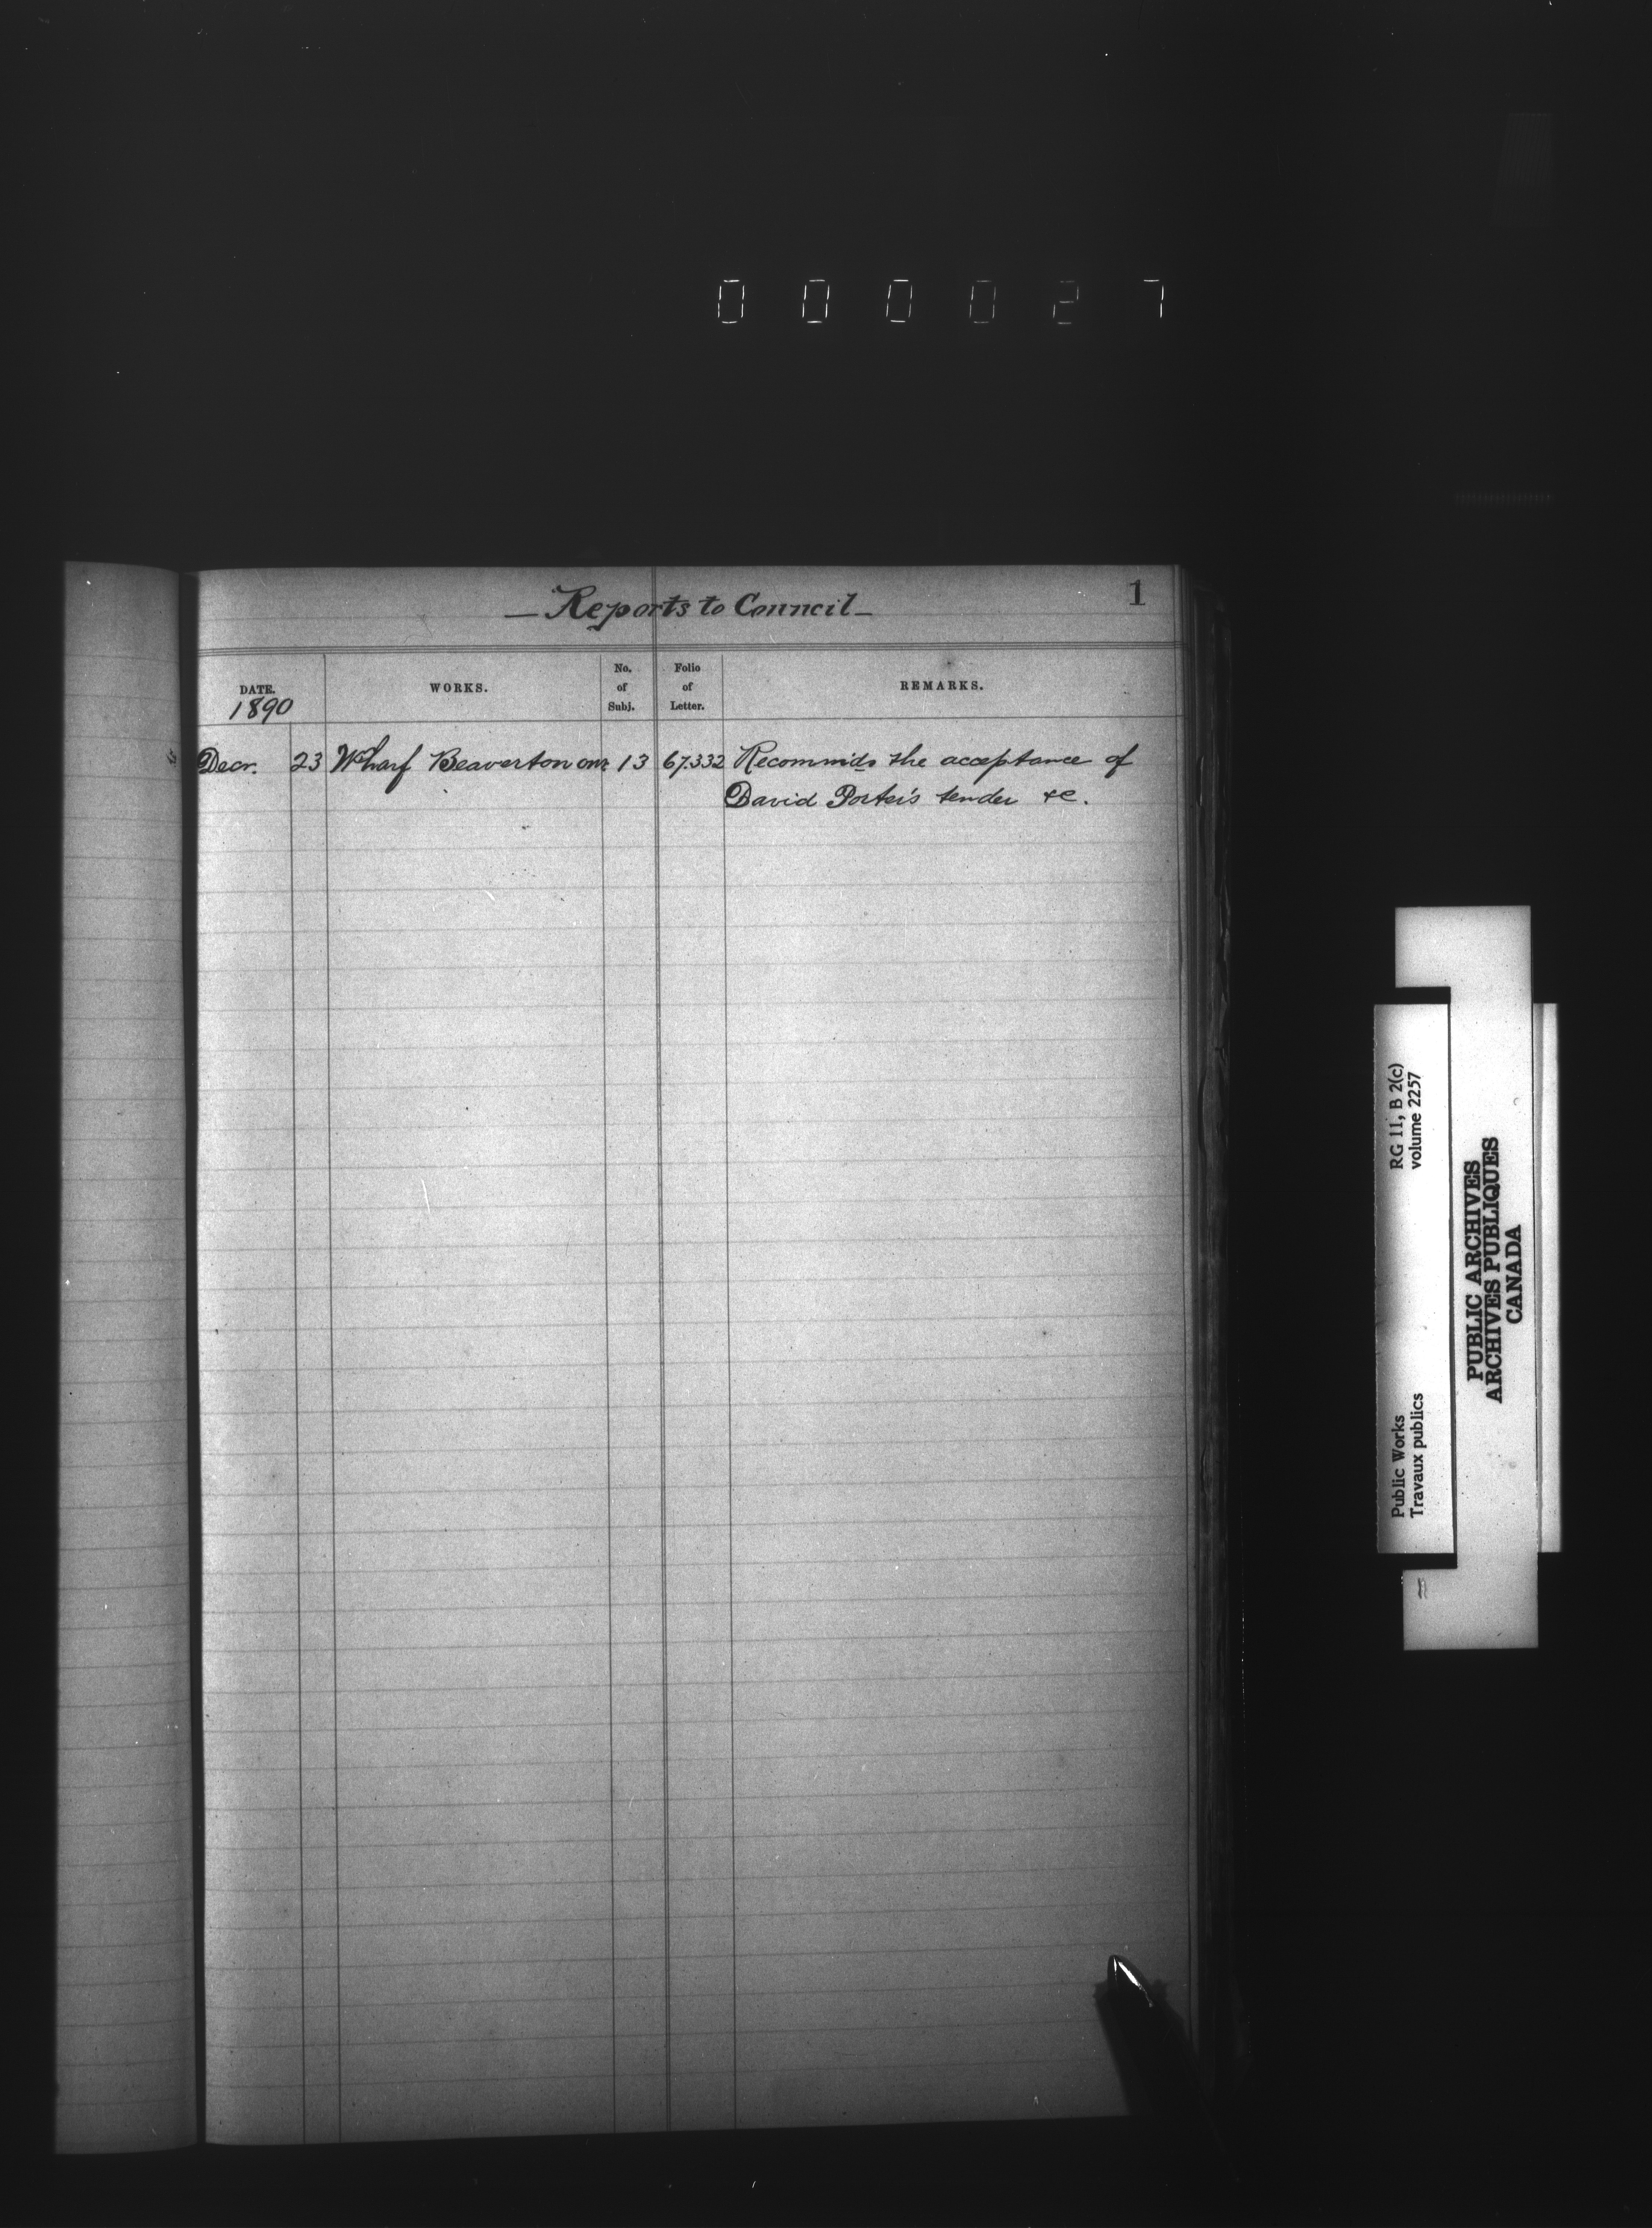 000027
1
— Reports to Council —
DATE. WORKS. No. of Subj. Folio of Letter. REMARKS.
1890
Decr. 23 Wharf Beaverton Ont 13 67.332 Recommds the acceptance of
David Porter's tender &c.
RG 11, B 2(c)
volume 2257
Public Works
Travaux publics
PUBLIC ARCHIVES
ARCHIVES PUBLIQUES
CANADA